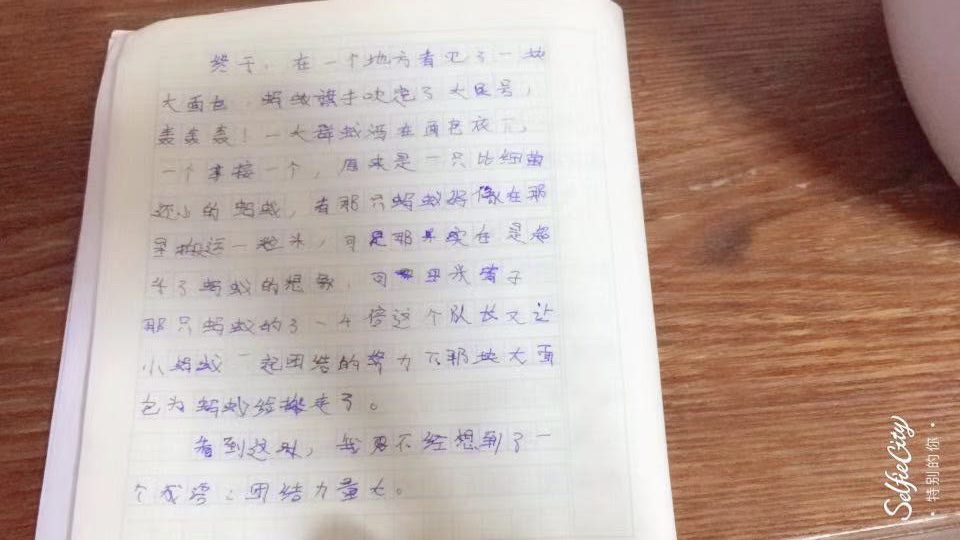 终于,在一个地方看见了一块
大面包,蚂蚁旗手吹起了大尾号,
轰轰轰!一大群蚁涌在面包
一个拿接一个,原来是一只比细菌
还小的蚂蚁,看那只蚂蚁好像在那
里搬运一粒米,可是那米实在是
了蚂蚁的想象,可米等于
那只蚂蚁的3-4倍这个队长又让
小蚂蚁一起团结的努力不那块大面
包为蚂蚁给搬走了。
看到这,我不经想到了一
个成语:团结力量大。
SelfieCity
·特别的你·